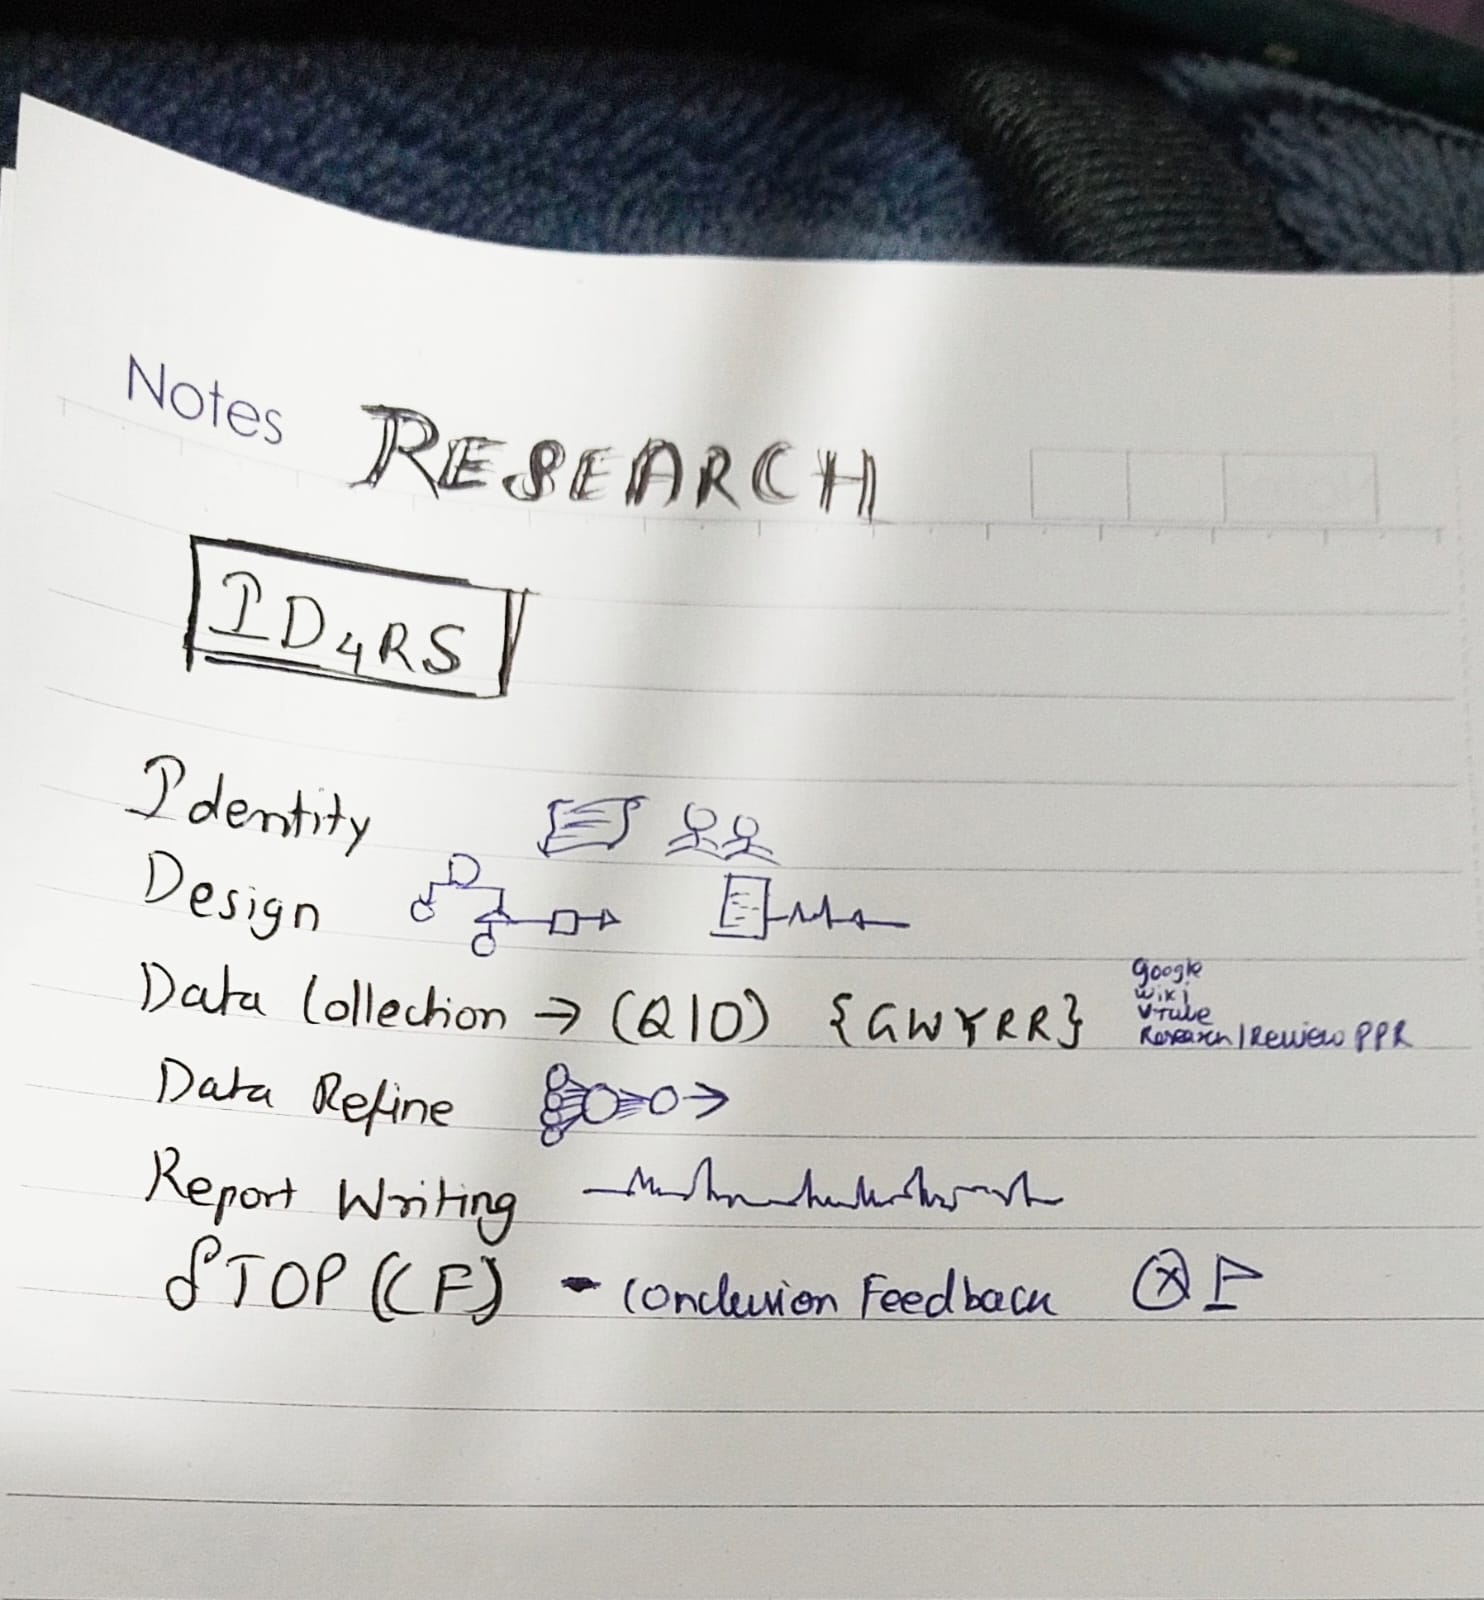 Notes RESEARCH
ID4RS
Identity
Design
Data Collection → (QIO) {GWYRR}
Google
Wiki
YTube
Research/Review PPR
Data Refine
Report Writing
STOP (CF) - Conclusion Feedback